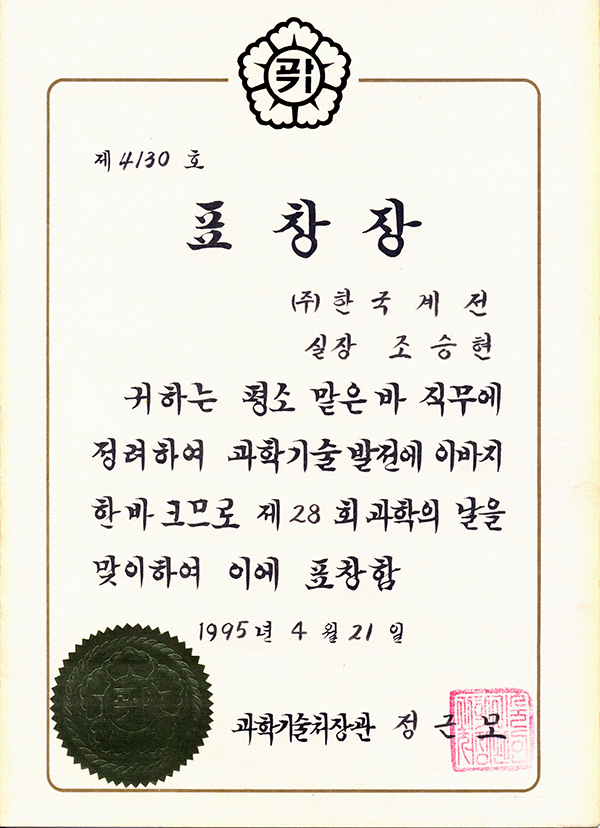 과기
제 4130 호
표 창 장
(주) 한 국 계 전
실장 조 승 현
귀하는 평소 맡은 바 직무에
정려하여 과학기술 발전에 이바지
한 바 크므로 제 28 회 과학의 날을
맞이하여 이에 표창함
1995 년 4 월 21 일
과학기술처장관 정 근 모